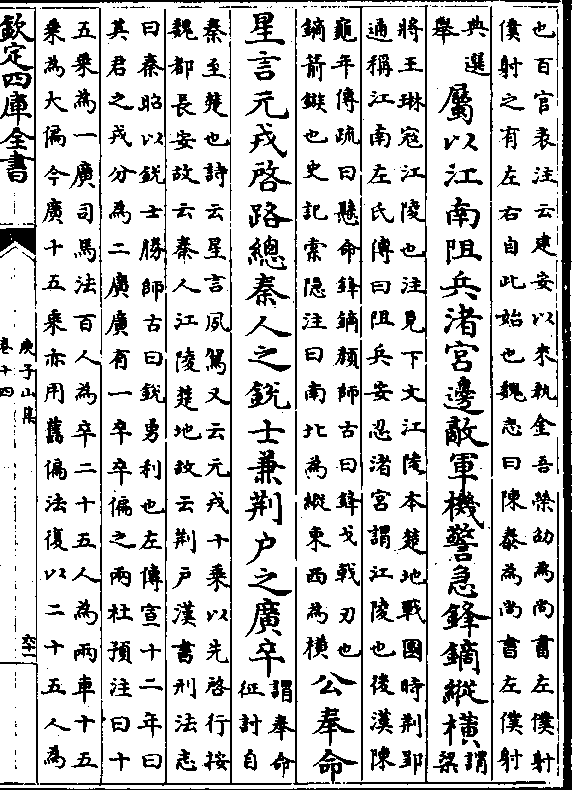 也百官表注云建安以來執金吾榮郃為尚書左僕射
僕射之有左右自此始也魏志曰陳泰為尚書左僕射
典選
舉
屬以江南阻兵渚宮邊敵軍機警急鋒鏑縱横
謂
梁
將王琳寇江陵也注見下文江陵本楚地戰國時荆郢
通稱江南左氏傳曰阻兵安忍渚宮謂江陵也後漢陳
龜年傳疏曰懸命鋒鏑顏師古曰鋒戈戟刃也
鏑箭鏃也史記索隐注曰南北為縱東西為橫
公奉命
星言元戎啓路總秦人之銳士兼荆户之廣卒
謂奉命
征討自
秦至楚也詩云星言夙駕又云元戎十乘以先啓行按
魏都長安故云秦人江陵楚地故云荆户漢書刑法志
曰秦昭以銳士勝師古曰銳勇利也左傳宣十二年曰
其君之戎分為二廣廣有一卒卒偏之兩杜預注曰十
五乘為一廣司馬法百人為卒二十五人為兩車十五
乘為大偏今廣十五乘亦用舊偏法復以二十五人為
欽定四庫全書
庾子山集
卷十四